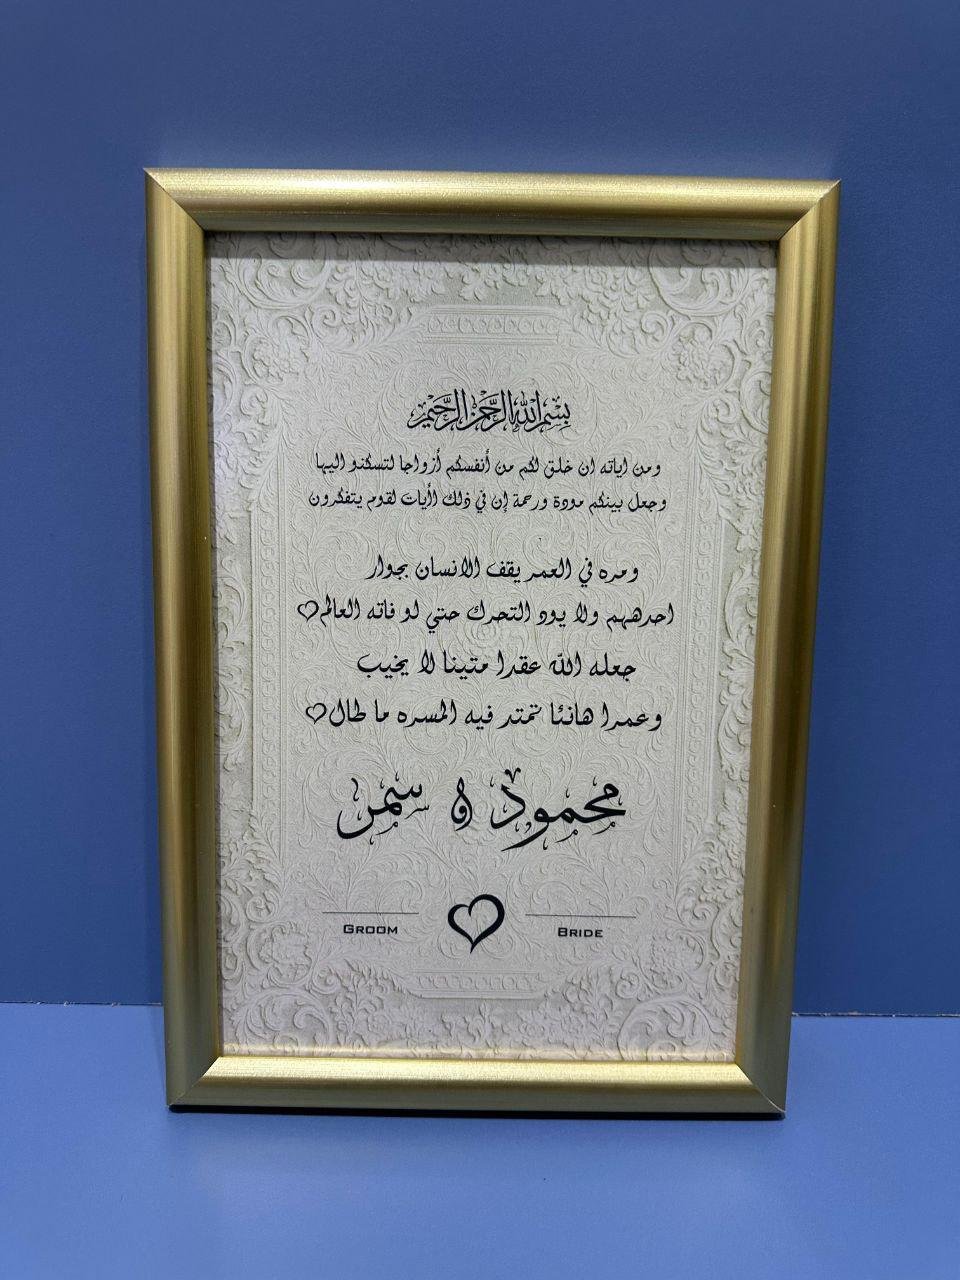 بسم الله الرحمن الرحيم
ومن اياته ان خلق لكم من أنفسكم أزواجا لتسكنو اليها
وجعل بينكم مودة ورحمة إن في ذلك لأيات لقوم يتفكرون
ومره في العمر يقف الانسان بجوار
احدههم ولا يود التحرك حتي لو فاته العالم♡
جعله الله عقدا متينا لا يخيب
وعمرا هانئا تمتد فيه المسره ما طال♡
محمود و سمر
GROOM BRIDE